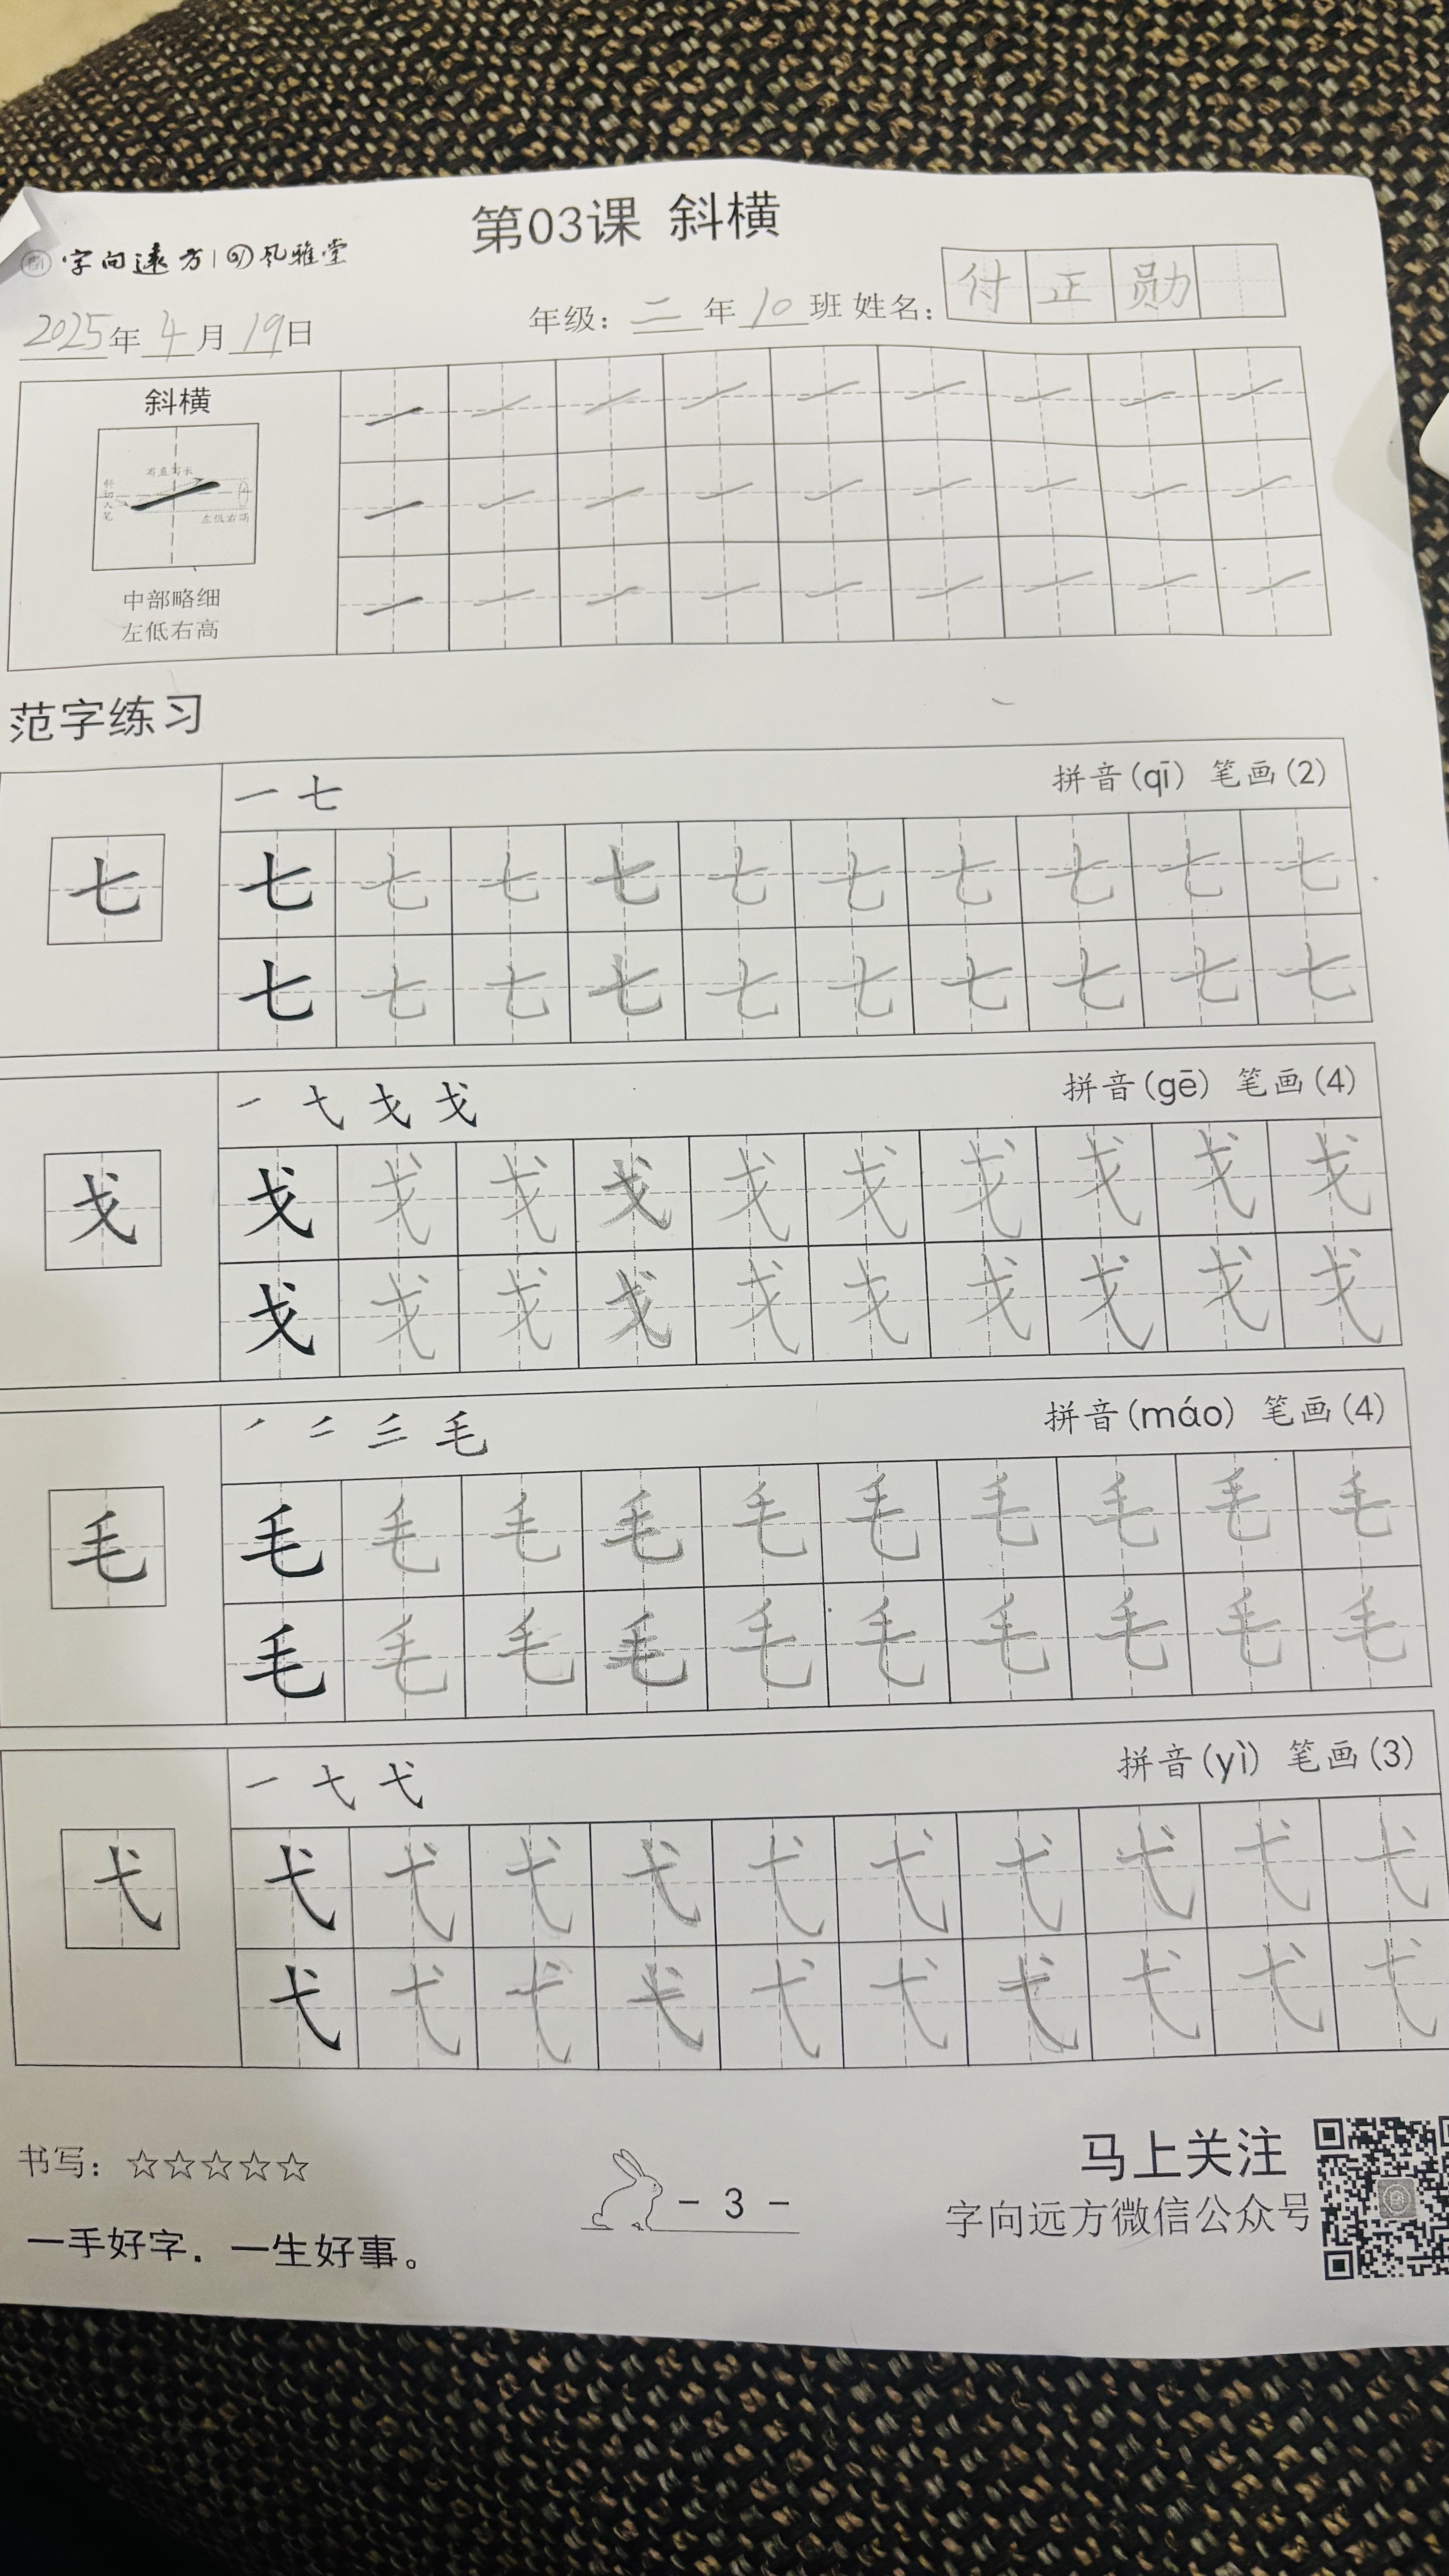 第03课 斜横
字向远方 风雅堂
2025年4月19日 年级：二年10班 姓名：付正勋
斜横
一 一 一 一 一 一 一 一 一
一 一 一 一 一 一 一 一 一
一 一 一 一 一 一 一 一 一
左低右高
中部略细
左低右高
范字练习
一 七 拼音(qī) 笔画(2)
七
七 七 七 七 七 七 七 七 七 七
七 七 七 七 七 七 七 七 七 七
一 弋 戈 戈 拼音(gē) 笔画(4)
戈
戈 戈 戈 戈 戈 戈 戈 戈 戈 戈
戈 戈 戈 戈 戈 戈 戈 戈 戈 戈
毛 拼音(máo) 笔画(4)
毛
毛 毛 毛 毛 毛 毛 毛 毛 毛 毛
毛 毛 毛 毛 毛 毛 毛 毛 毛 毛
一 弋 拼音(yì) 笔画(3)
弋
弋 弋 弋 弋 弋 弋 弋 弋 弋 弋
弋 弋 弋 弋 弋 弋 弋 弋 弋 弋
书写：☆☆☆☆☆
- 3 -
马上关注
字向远方微信公众号
一手好字．一生好事。